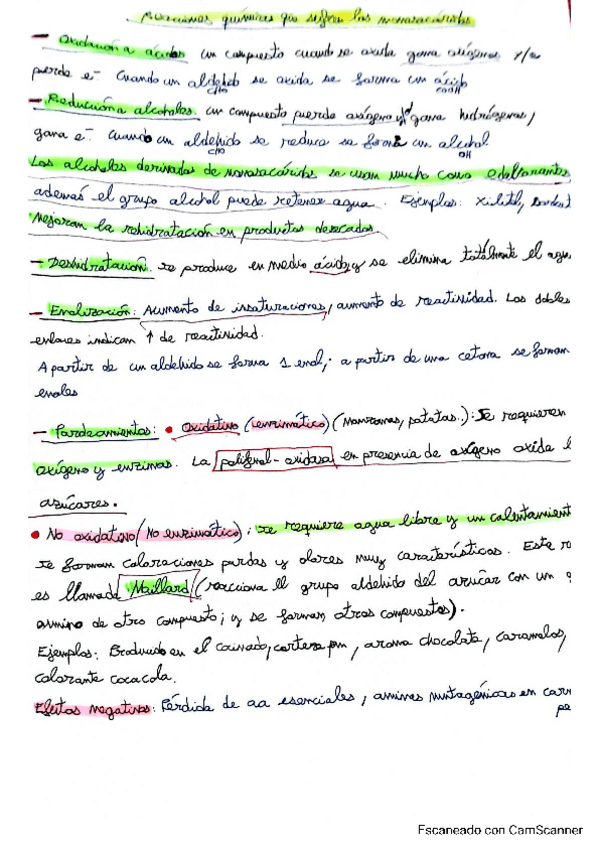 Reacciones químicas que sufren los monosacáridos
- Oxidación a ácidos un compuesto cuando se oxida gana oxígenos y/o
pierde e- Cuando un aldehido se oxida se forma un ácido
CHO COOH
- Reducción a alcoholes. un compuesto pierde oxígeno y/o gana hidrógenos,
gana e- Cuando un aldehido se reduce se forma un alcohol
CHO OH
Los alcoholes derivados de monosacáridos se usan mucho como edulcorantes
además el grupo alcohol puede retener agua. Ejemplos: xilitol,
Mejoran la rehidratación en productos desecados.
- Deshidratación. se produce en medio ácido, y se elimina totalmente el agu
- Enolización: Aumento de insaturaciones, aumento de reactividad. Los dobles
enlaces indican ↑ de reactividad.
A partir de un aldehido se forma 1 enol, a partir de una cetona se forman
enoles
- Pardeamientos: • Oxidativo (enzimático) (Manzanas, patatas..): Se requieren
oxígeno y enzimas. La polifenol-oxidasa en presencia de oxígeno oxida l
azúcares.
• No oxidativo (No enzimático): se requiere agua libre y un calentamient
se forman coloraciones pardas y olores muy característicos. Este
es llamada Maillard (reacciona el grupo aldehido del azúcar con un
amino de otro compuesto; y se forman otros compuestos).
Ejemplos: Producido en el cocinado, corteza pan, aroma chocolate, caramelos,
colorante cocacola.
Efectos negativos: Pérdida de aa esenciales, aminas mutagénicas en carn
pe
Escaneado con CamScanner